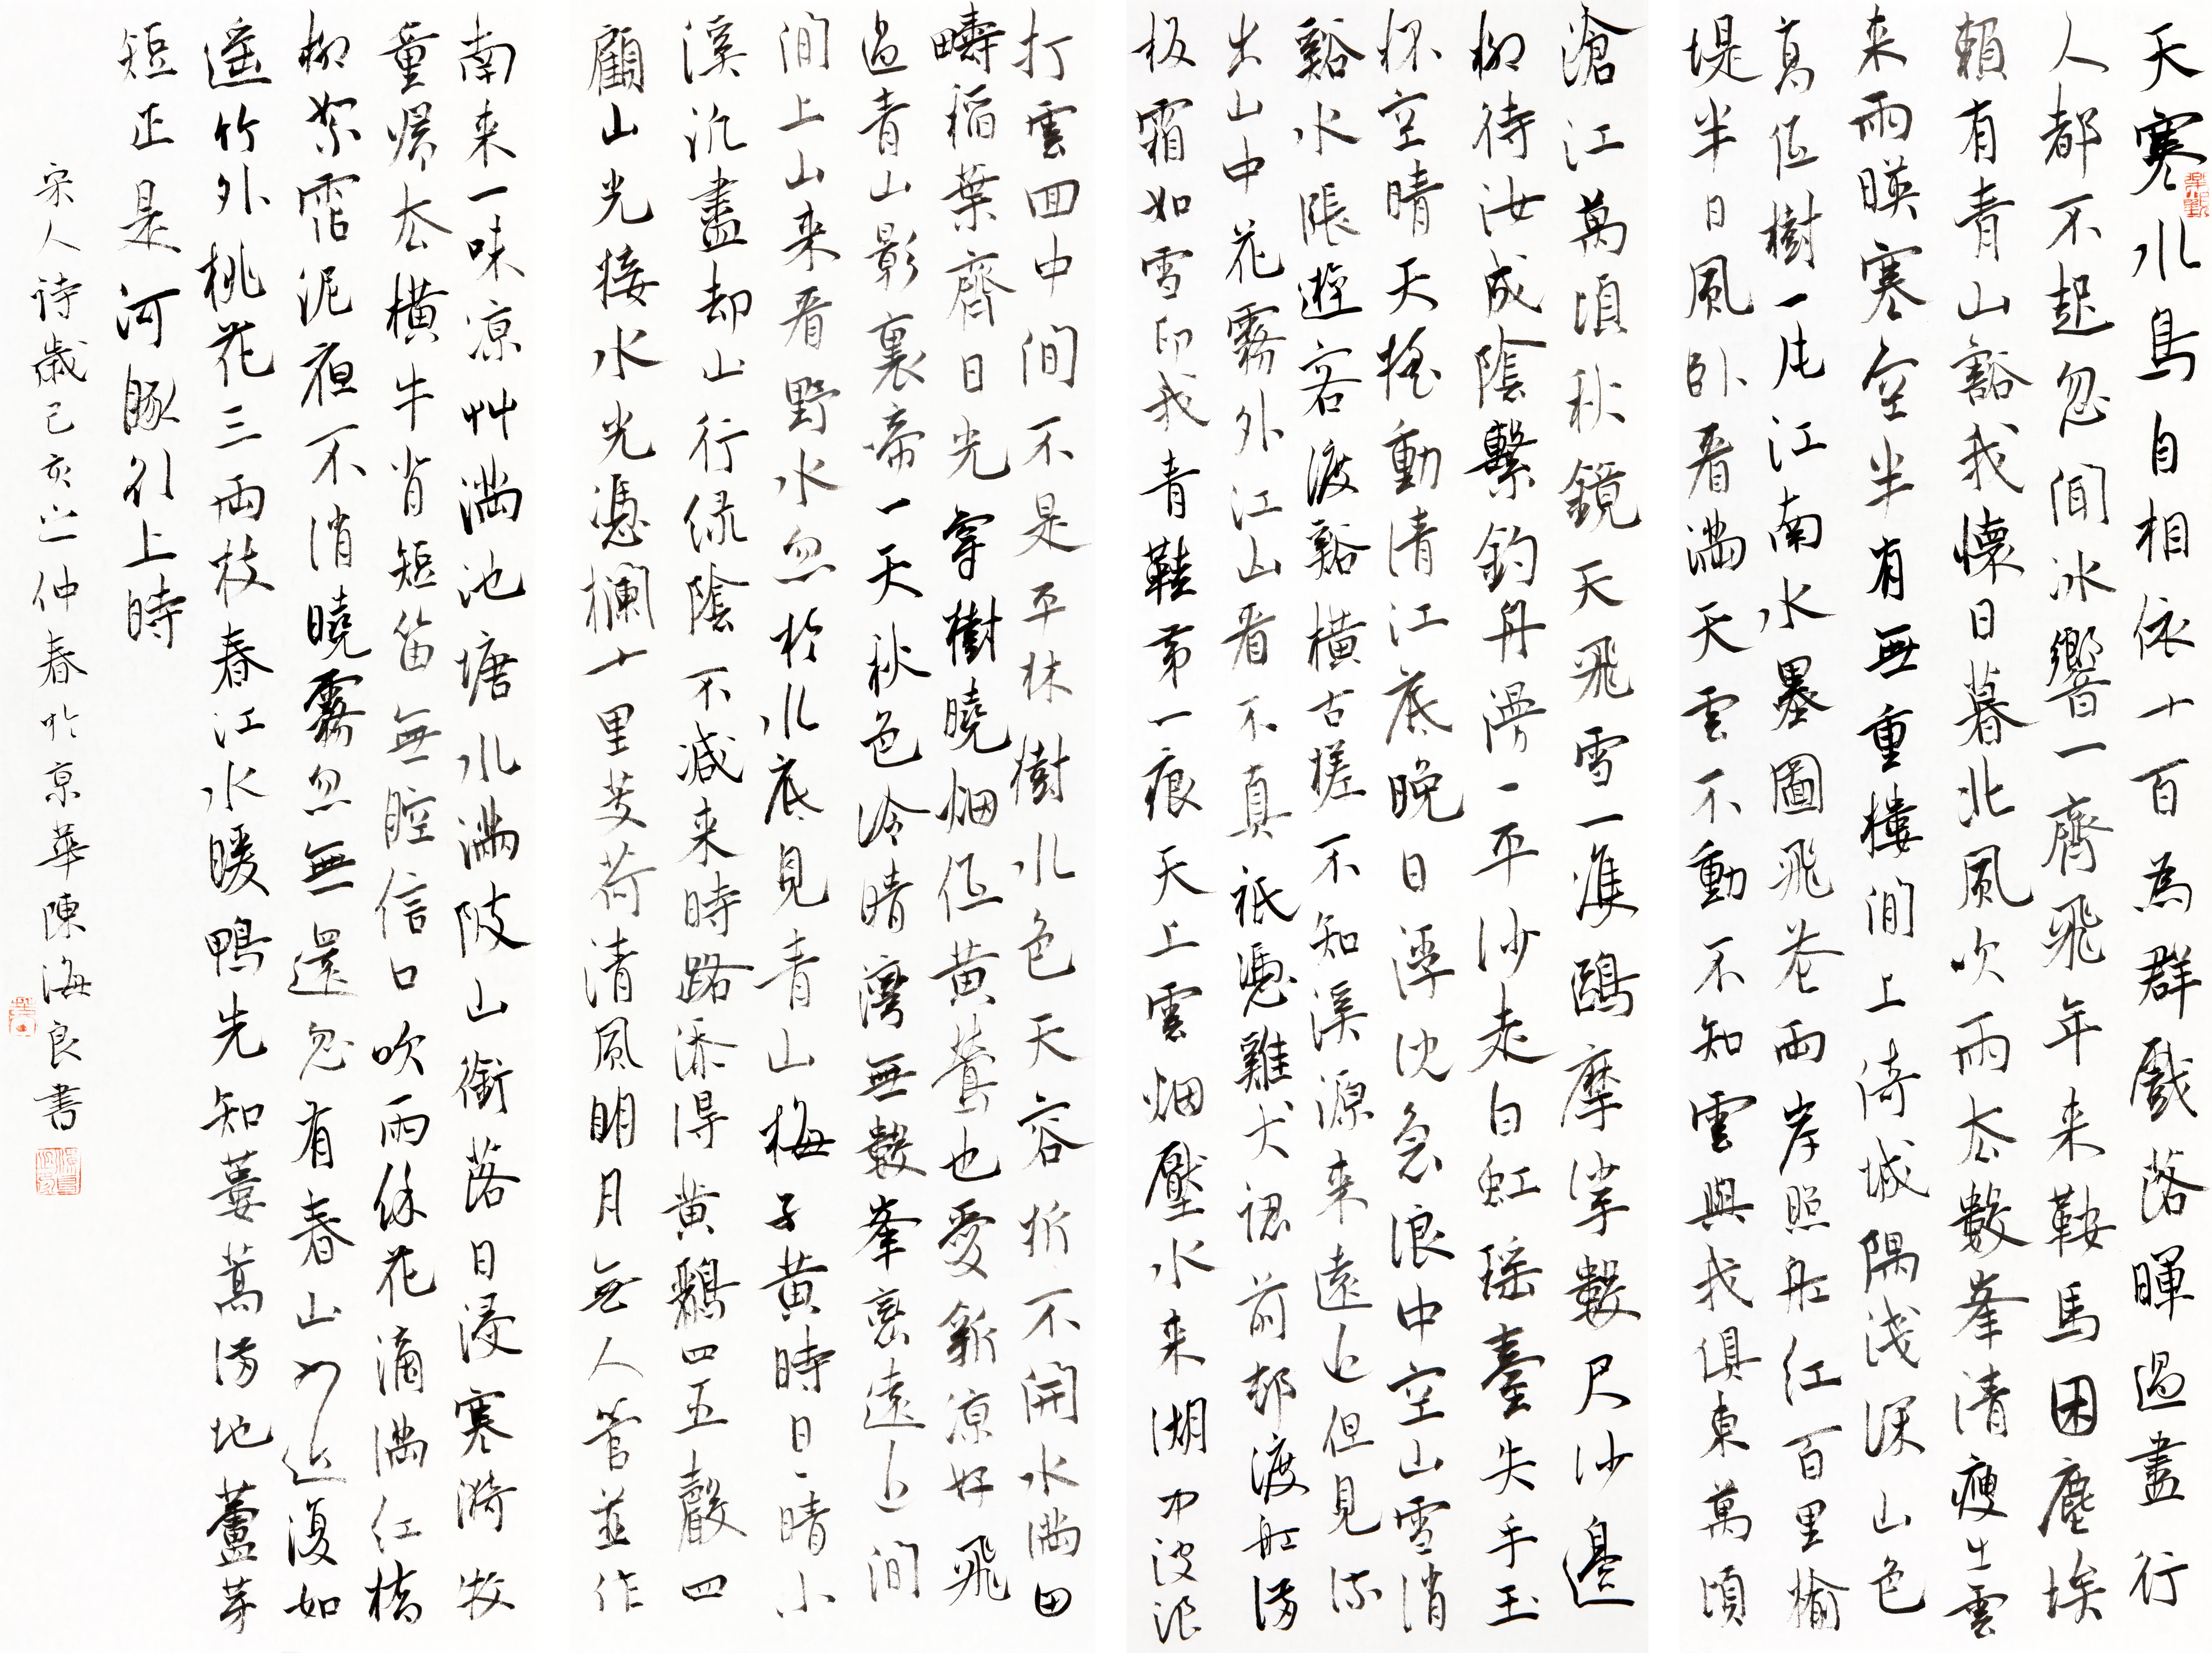 天寒水鳥自相依十百為群戲落暉過盡行
人都不起忽聞冰響一齊飛年来鞍馬困塵埃
賴有青山豁我懷日暮北風吹雨去數峯清瘦出雲
来雨暎寒空半有無重樓閒上倚城隅淺深山色
高低樹一片江南水墨圖飛花兩岸照舡紅百里榆
堤半日風臥看滿天雲不動不知雲與我俱東萬頃
滄江萬頃秋鏡天飛雪一雙鷗摩挲數尺沙邊
柳待汝成陰繫釣舟漫漫平沙走白虹瑶臺失手玉
杯空晴天摇動清江底晚日浮沈急浪中空山雪消
谿水漲遊客渡谿橫古槎不知溪源来遠近但見流
出山中花霧外江山看不真祇憑雞犬認前邨渡舡滿
板霜如雪印我青鞋第一痕天上雲烟壓水来湖中波浪
打雲回中間不是平林樹水色天容拆不開水滿田
疇稻葉齊日光穿樹曉烟低黄鶯也愛新涼好飛
過青山影裏啼一天秋色冷晴灣無數峯巒遠近間
閒上山来看野水忽於水底見青山梅子黄時日日晴小
溪泛盡却山行緑陰不減来時路添得黄鸝四五聲四
顧山光接水光憑欄十里芰荷清風明月無人管並作
南来一味凉艸滿池塘水滿陂山銜落日浸寒漪牧
童歸去橫牛背短笛無腔信口吹雨餘花滴滿紅橋
柳絮霑泥夜不消曉霧忽無還忽有春山如近復如
遥竹外桃花三兩枝春江水暖鴨先知蔞蒿滿地蘆芽
短正是河豚引上時
宋人诗歲己亥之仲春於京華陳海良書